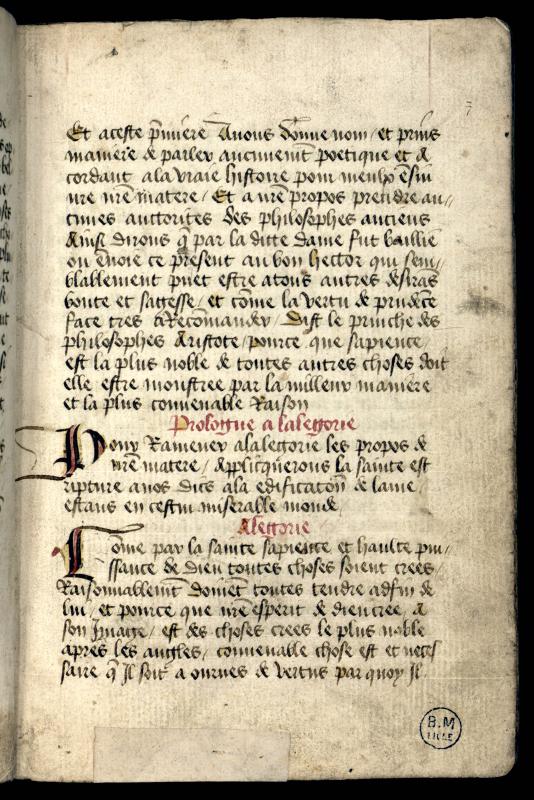 Et a ceste p̄miere Auons donne nom / et prins
maniere de parler aucunem̄t poetique et A
cordant a la vraie histoire pour mieulx ensiu
ure nr̄e matere / Et a nr̄e propos prendre au/
cunes auttorites des philosophes anciens
Ainsi dirons q̄ par la ditte dame fut baillie
ou enuoie ce present au bon hector qui sem/
blablement puet estre a tous autres desirās
bonte et sagesse / et cōme la vertu de prudēce
face tres a Recōmander / Dist le prinche des
philosophes Aristote / pource que sapience /
est la plus noble de toutes autres choses doit
elle estre monstree par la milleur maniere
et la plus conuenable Raison
Prologue a lalegorie
Pour Ramener a lalegorie les propos de
nr̄e matere / Applicquerons la sainte est
ripture a nos dics a la edificatōn de lame /
estans en cestui miserable monde /
Alegorie
Cōme par la sainte sapience et haulte pui/
ssance de dieu toutes choses soient crees /
Raisonnablem̄t doiuēt toutes tendre a dfin de
lui / et pource que nr̄e esperit de dieu cree / A
son Jmage / est des choses crees le plus noble
apres les angles / conuenable chose est et neces
saire q̄ Jl soit aournes de vertus par quoy Jl
B.M
LILLE